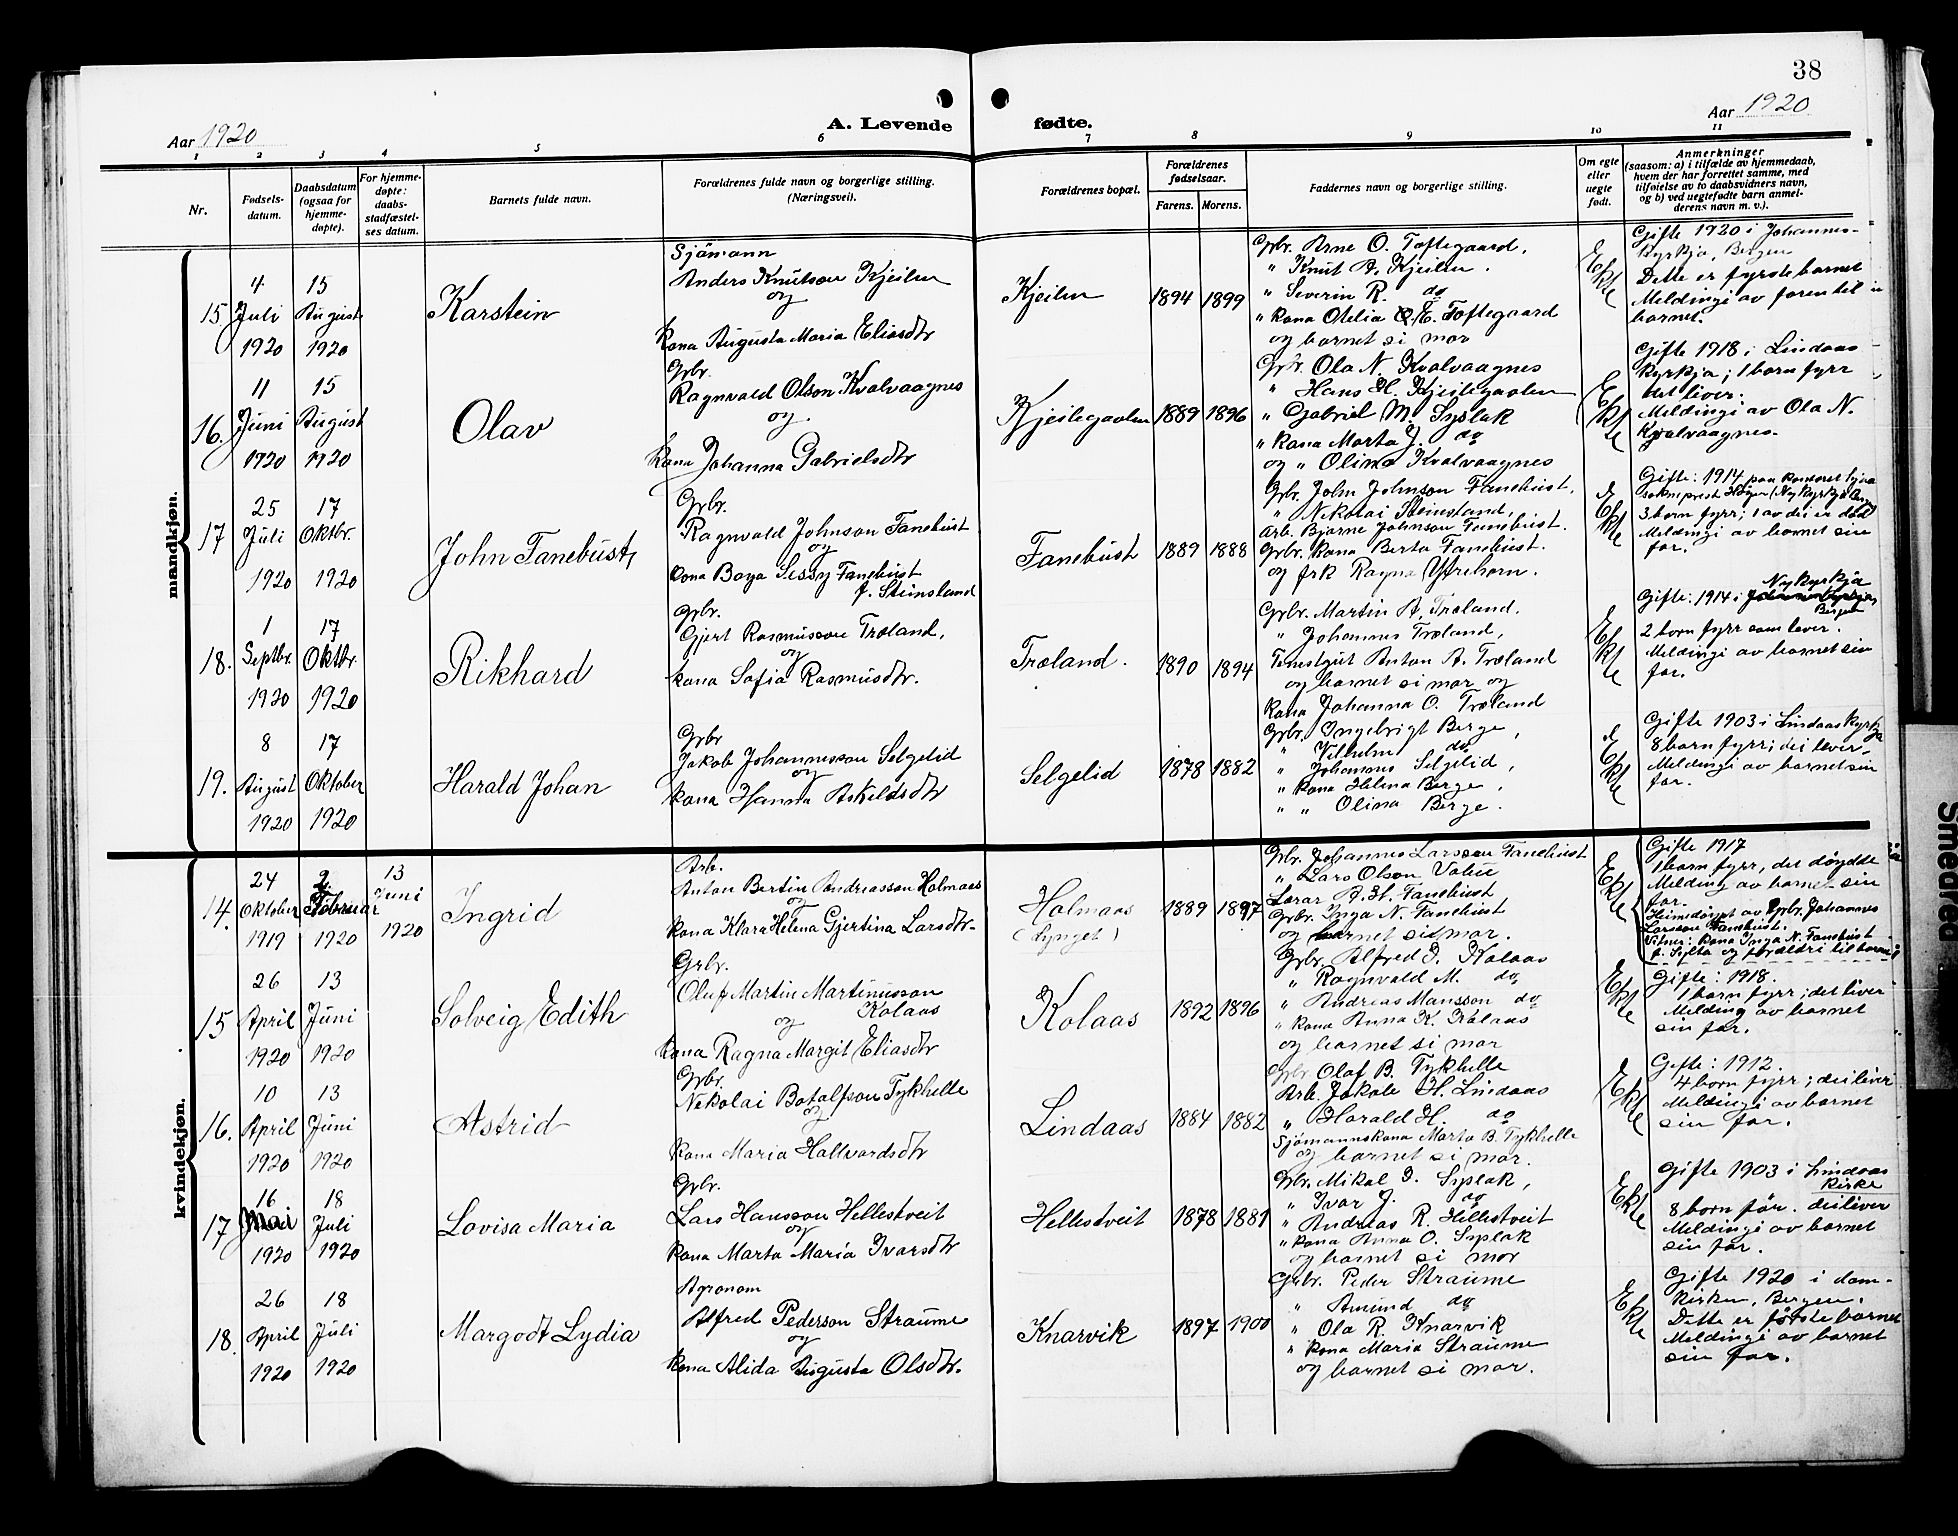 38
Aar 1920
A. Levende
fødte.
Aar 1920
1 2 3 4 5 6 7 8 9 10 11
Nr.
Fødsels-
datum.
Daabsdatum
(ogsaa for
hjemme-
døpte).
For hjemme-
døpte:
daabs-
stadfæstel-
ses datum.
Barnets fulde navn.
Forældrenes fulde navn og borgerlige stilling.
(Næringsvei).
Forældrenes bopæl.
Forældrenes
fødselsaar.
Farens. Morens.
Faddernes navn og borgerlige stilling.
Om egte
eller
uegte
født.
Anmerkninger
(saasom: a) i tilfælde av hjemmedaab,
hvem der har forrettet samme, med
tilføielse av to daabsvidners navn,
og b) ved uegtefødte barn anmel-
derens navn m. v.).
mandkjøn.
15
4
Juli
1920
15
August
1920
Karstein
Sjömann
Anders Knutson Kjeilen
og
kona Augusta Maria Eliasdtr
Kjeilen
1894 1899
Grbr. Arne O. Toftegaard.
" Knut A. Kjeilen.
" Severin R. do
" kona Otelia E. Toftegaard
og barnet si mor
Ekte
Gifte 1920 i Johannes-
kyrkja, Bergen
Dette er fyrste barnet
Meldingi av faren til
barnet.
16.
11
Juni
1920
15
August
1920
Olav
Grbr.
Ragnvald Olson Kvalvaagnes
og
kona Johanna Gabrielsdtr
Kjeilegavlen
1889 1896
Grbr. Ola N. Kvalvaagnes
" Hans H. Kjeilegavlen
" Gabriel M. Syslak
" kona Marta J. do
og " Olina Kvalvaagnes
Ekte
Gifte 1918 i Lindaas
kyrkja; 1 born fyrr
det liver.
Meldingi av Ola N.
Kvalvaagnes.
17
25
Juli
1920
17
Oktbr.
1920
John Fanebust
Grbr.
Ragnvald Johnson Fanebust
og
kona Sessy Fanebust
f. Steinsland
Fanebust
1889 1888
Grbr. John Johnson Fanebust.
" Nikolai Steinsland.
Arb. Bjarne Johnson Fanebust.
Grbr. kona Berta Fanebust.
og frk Ragna Ytrehorn.
Ekte
Gifte: 1914 paa kontoret
3 born fyrr; 1 av dei er död
Meldingi av barnet sin
far.
18.
1
Septbr.
1920
17
Oktbr.
1920
Rikhard
Grbr.
Gjert Rasmusson Træland,
og
kona Sofia Rasmusdtr.
Træland.
1890 1894
Grbr. Martin A. Træland.
" Johannes Træland,
Tenestgut Anton A. Træland
og barnet si mor og
kona Johanna O. Træland
Ekte
Gifte: 1914 i Nykyrkja
Bergen
2 born fyrr som lever.
Meldingi av barnet sin
far.
19.
8
August
1920
17
Oktober
1920
Harald Johan
Grbr
Jakob Johannesson Selgelid
og
kona Hanna Askeldsdtr
Selgelid
1878 1882
Grbr. Ingebrigt Berge,
" Vilhelm do
" Johannes Selgelid,
" kona Helena Berge,
" " Olina Berge.
Ekte
Gifte 1903 i Lindaas kyrkja
8 born fyrr; dei lever.
Meldingi av barnet sin
far.
kvindekjøn.
14.
24
Oktober
1919
2.
Februar
1920
13
Juni
1920
Ingrid
Arb.
Anton Bertin Andreasson Holmaas
og
kona Klara Helena Gjertina Larsdtr.
Holmaas
(Lynget)
1889 1897
Grbr. Johannes Larsson Fanebust
" Lars Olson
Lærar A. H. Fanebust
Grbr. Inga N. Fanebust
og barnet si mor.
Ekte
Gifte 1917
1 born fyrr, det döydde
Melding av barnet sin
far.
Heimedöypt av Grbr. Johannes
Larsson Fanebust.
Vitner: kona Inga N. Fanebust
f. Sylta og foreldri til barnet
15
26
April
1920
13
Juni
1920
Solveig Edith
Grbr.
Oluf Martin Martinusson
Kolaas
og
kona Ragna Margit Eliasdtr
Kolaas
1892 1896
Grbr. Alfred J. Kolaas
" Ragnvald M. do
" Andreas Mansson do
" kona Anna K. Kolaas
og barnet si mor
Ekte
Gifte: 1918.
1 born fyrr; det liver
Melding av barnet
sin far.
16.
10
April
1920
13
Juni
1920
Astrid
Grbr.
Nikolai Botolfson Tykhelle
og
kona Maria Hallvardsdtr
Lindaas
1884 1882
Grbr Olaf B. Tykhelle
Arb. Jakob H. Lindaas
" Harald H. do
Sjömannskona Marta B. Tykhelle
og barnet si mor.
Ekte
Gifte: 1912.
4 born fyrr; dei liver
Meldingi av barnet
sin far.
17
16
Mai
1920
18
Juli
1920
Lovisa Maria
Grbr.
Lars Hansson Hellestveit
og
kona Marta Maria Ivarsdtr
Hellestveit
1878 1881
Grbr. Mikal D. Syslak,
" Ivar J. do
" Andreas R. Hellestveit
" kona Anna O. Syslak
og barnet si mor
Ekte
Gifte 1903 i Lindaas
kirke
8 born för. dei liver
Meldingi av barnet
sin far.
18.
26
April
1920
18
Juli
1920
Margodt Lydia
Agronom
Alfred Pederson Straume
og
kona Alida Augusta Olsdtr.
Knarvik
1897 1900
Grbr. Peder Straume
" Amund do
" Ola R. Knarvik
" kona Maria Straume
og barnet si mor.
Ekte
Gifte 1920 i dom-
kirken, Bergen.
Dette er förste barnet
Meldingi av barnet
sin far.